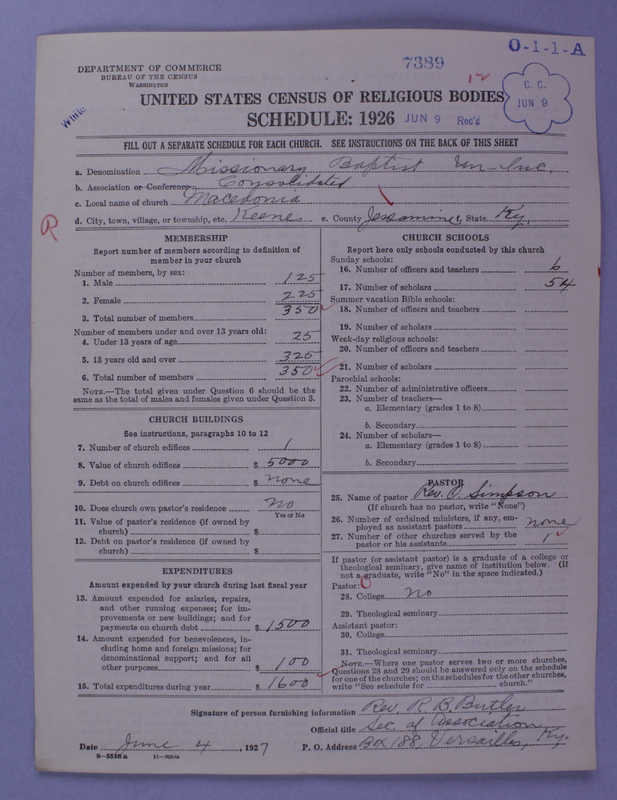 O-1-1-A
DEPARTMENT OF COMMERCE
BUREAU OF THE CENSUS
WASHINGTON
7389
C. C.
JUN 9
White
UNITED STATES CENSUS OF RELIGIOUS BODIES
SCHEDULE: 1926 JUN 9 Rec'd
FILL OUT A SEPARATE SCHEDULE FOR EACH CHURCH. SEE INSTRUCTIONS ON THE BACK OF THIS SHEET
a. Denomination Missionary Baptist Inc.
b. Association or Conference Consolidated
c. Local name of church Macedonia
d. City, town, village, or township, etc. Keene e. County Jessamine f. State Ky.
R
MEMBERSHIP
Report number of members according to definition of
member in your church
Number of members, by sex:
1. Male 125
2. Female 225
3. Total number of members 350
Number of members under and over 13 years old:
4. Under 13 years of age 25
5. 13 years old and over 325
6. Total number of members 350
NOTE.—The total given under Question 6 should be the
same as the total of males and females given under Question 3.
CHURCH BUILDINGS
See instructions, paragraphs 10 to 12
7. Number of church edifices 1
8. Value of church edifices $ 5000
9. Debt on church edifices $ none
10. Does church own pastor's residence no
Yes or No
11. Value of pastor's residence (if owned by
church) $
12. Debt on pastor's residence (if owned by
church) $
EXPENDITURES
Amount expended by your church during last fiscal year
13. Amount expended for salaries, repairs,
and other running expenses; for im-
provements or new buildings; and for
payments on church debt $ 1500
14. Amount expended for benevolences, in-
cluding home and foreign missions; for
denominational support; and for all
other purposes $ 100
15. Total expenditures during year $ 1600
CHURCH SCHOOLS
Report here only schools conducted by this church
Sunday schools:
16. Number of officers and teachers 6
17. Number of scholars 54
Summer vacation Bible schools:
18. Number of officers and teachers
19. Number of scholars
Week-day religious schools:
20. Number of officers and teachers
21. Number of scholars
Parochial schools:
22. Number of administrative officers
23. Number of teachers—
a. Elementary (grades 1 to 8)
b. Secondary
24. Number of scholars—
a. Elementary (grades 1 to 8)
b. Secondary
PASTOR
25. Name of pastor Rev. O. Simpson
(If church has no pastor, write "None")
26. Number of ordained ministers, if any, em-
ployed as assistant pastors none
27. Number of other churches served by the
pastor or his assistants 1
If pastor (or assistant pastor) is a graduate of a college or
theological seminary, give name of institution below. (If
not a graduate, write "No" in the space indicated.)
Pastor:
28. College no
29. Theological seminary
Assistant pastor:
30. College
31. Theological seminary
NOTE.—Where one pastor serves two or more churches,
Questions 28 and 29 should be answered only on the schedule
for one of the churches; on the schedules for the other churches,
write "See schedule for church."
Signature of person furnishing information Rev. R. B. Butler
Official title Sec. of Association
Date June 4, 1927 P. O. Address Box 188, Versailles, Ky.
8—5518 a